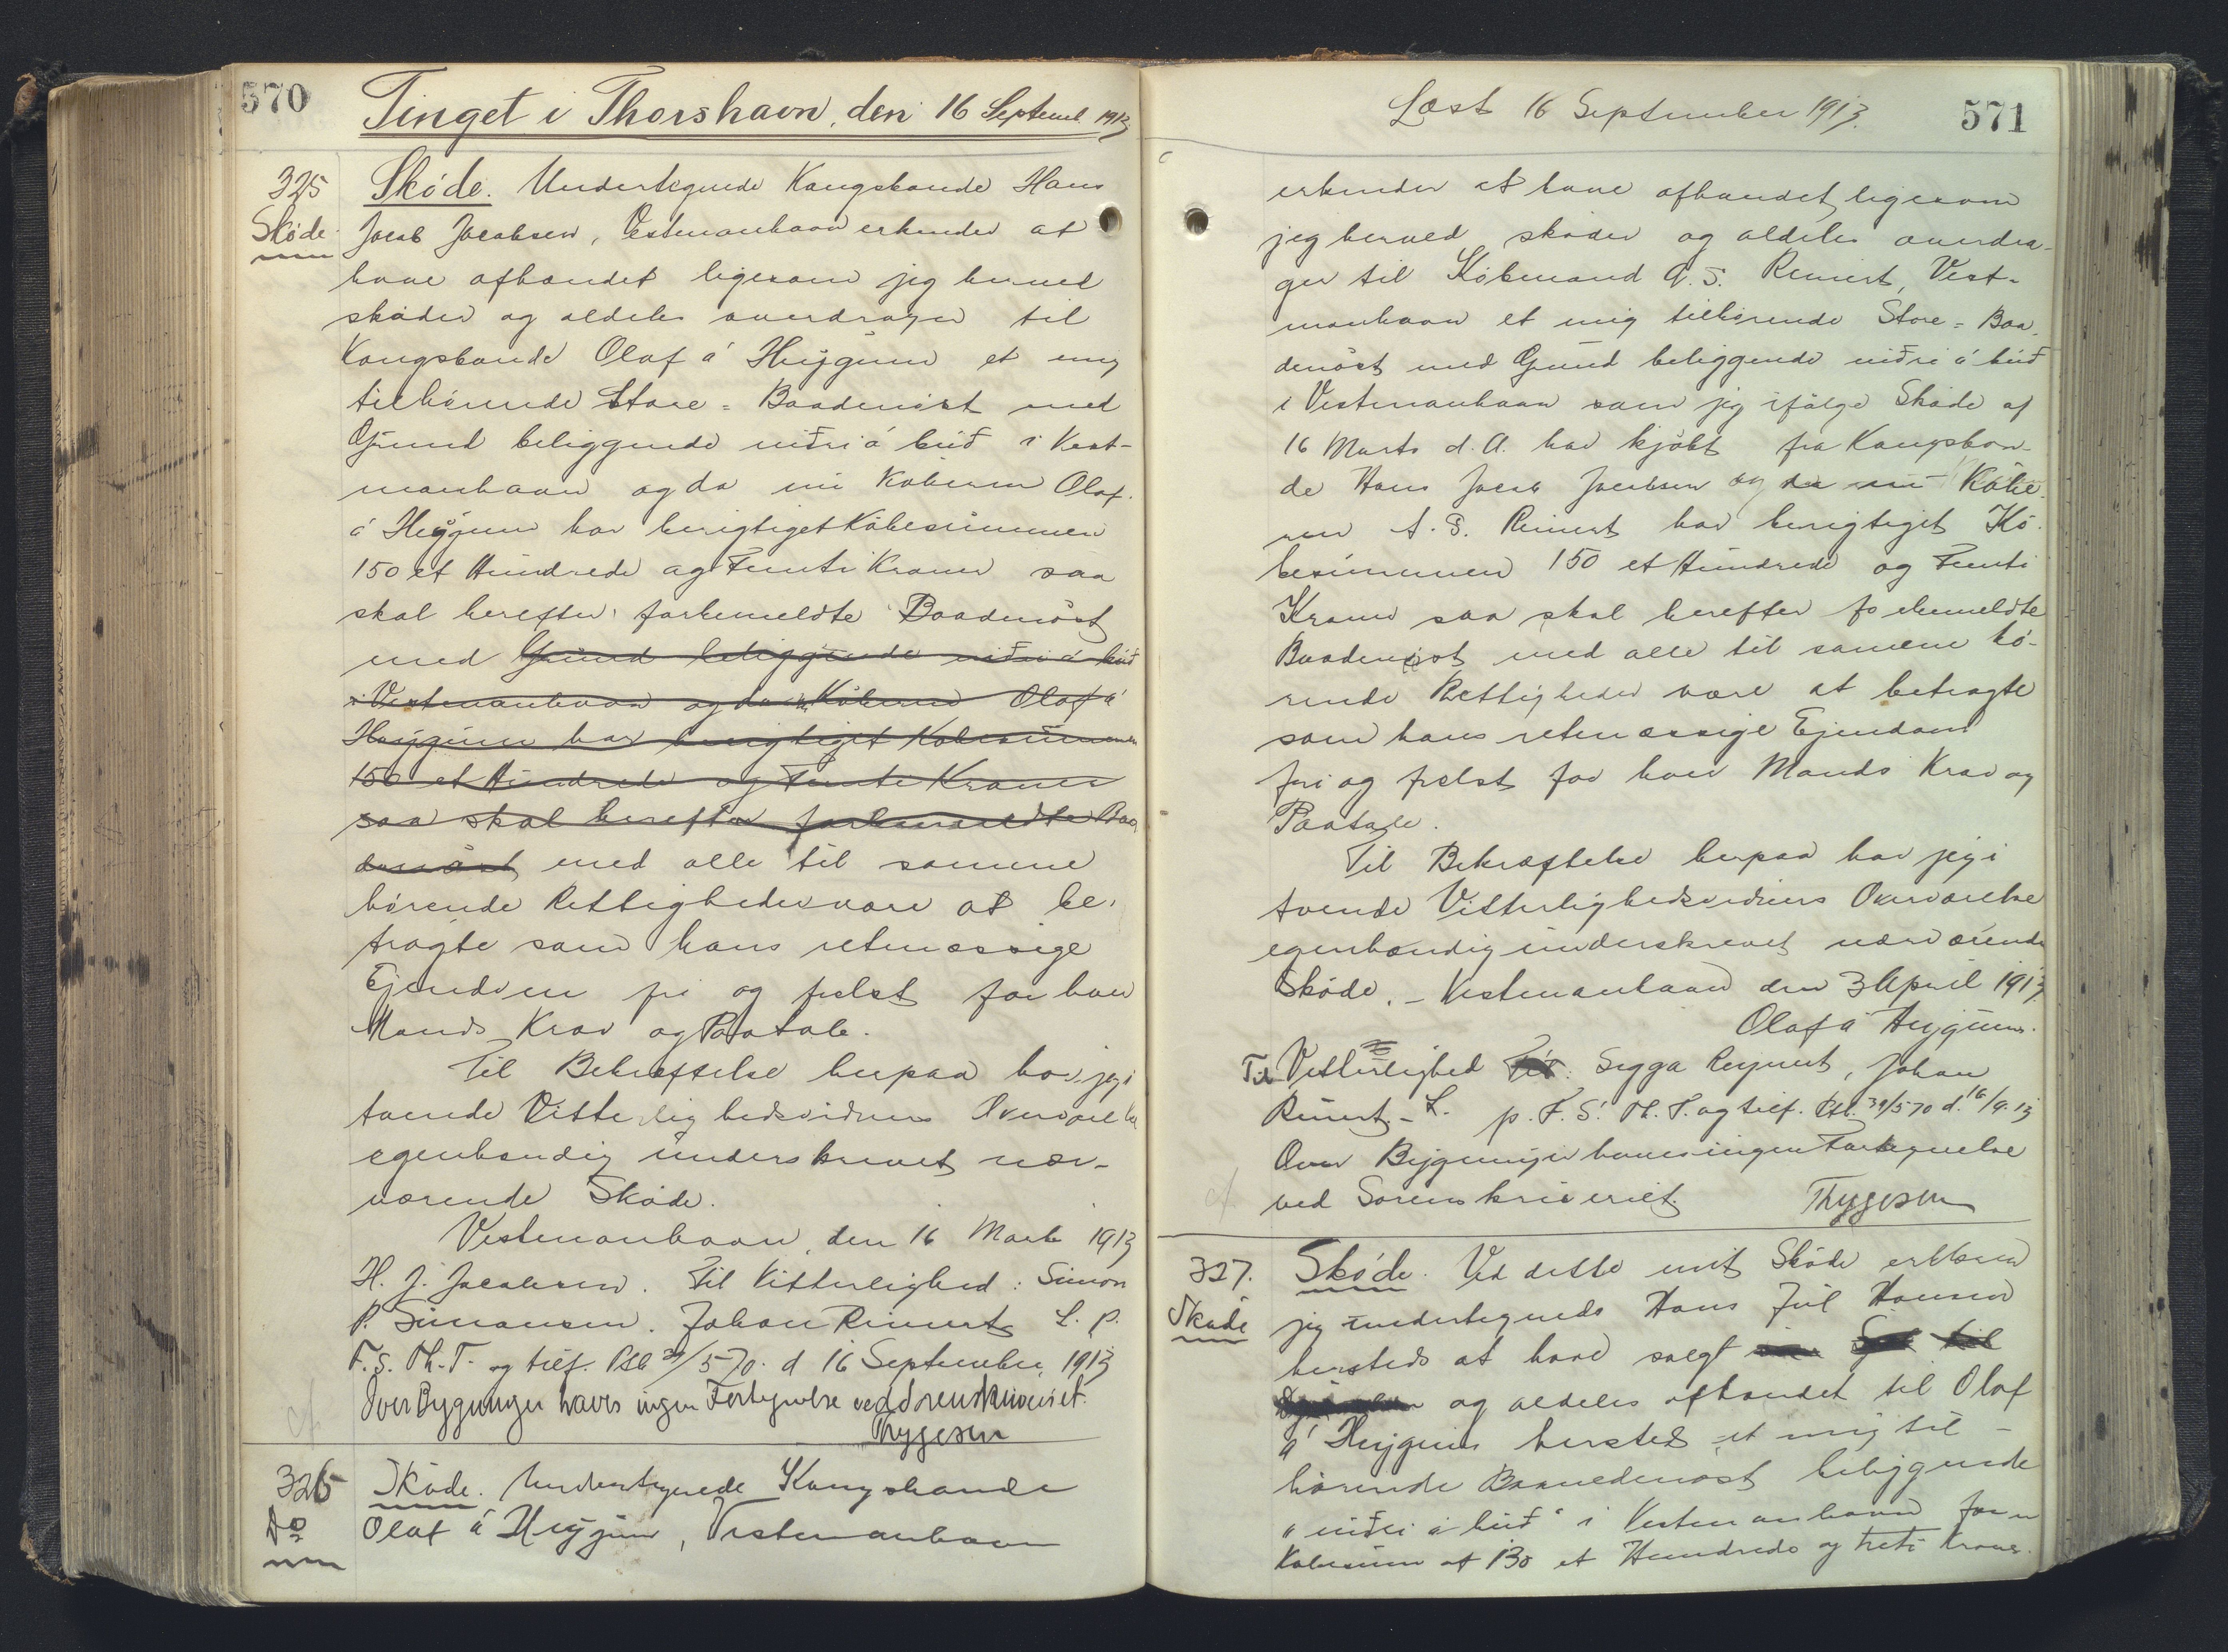 570
Tinget i Thorshavn, den 16 Septemb 1913
325
Skøde.
Skøde. Undertegnede Kongsbonde Hans
Jacob Jacobsen, Vestmanhavn erkender at
have afhændet ligesom jeg herved
skøder og aldeles overdrager til
Kongsbonde Olaf á Heygum et mig
tilhørende Store = Baadenøst med
Grund beliggende niðri á búð i Vest-
manhavn og da nu Køberen Olaf
á Heygum har berigtiget Købesummen
150 et Hundrede og Femti Kroner saa
skal herefter forbemeldte Baadenøst
med Grund beliggende niðri á búð
i Vestmanhavn og da nu Køberen Olaf á
Heygum har berigtiget Købesummen
150 et Hundrede og Femti Kroner
saa skal herefter forbemeldte Baa
denøst med alle til samme
hørende Rettigheder være at be-
tragte som hans retmæssige
Ejendom fri og frelst for hver
Mands Krav og Paatale.
Til Bekræftelse herpaa har jeg i
tvende Vitterlighedsvidners Overværelse
egenhændig underskrevet nær-
værende Skøde.
Vestmanhavn, den 16 Marts 1913
H. J. Jacobsen. Til Vitterlighed: Simon
P. Simonsen. Johan Reinert L. p.
F. S. Th. T. og tilf. Ptb 39/570. d 16 September 1913
Over Bygninger haves ingen Fortegnelse ved Sorenskriveriet.
Thygesen
326
Do
Skøde. Undertegnede Kongsbonde
Olaf á Heygum, Vestmanhavn
Læst 16 September 1913.
571
erkender at have afhændet ligesom
jeg herved skøder og aldeles overdra-
ger til Købmand A. S. Reinert, Vest-
manhavn et mig tilhørende Store = Baa-
denøst med Grund beliggende niðri á búð
i Vestmanhavn som jeg ifølge Skøde af
16 Marts d. A. har kjøbt fra Kongsbon-
de Hans Jacob Jacobsen og da nu Købe-
ren A. S. Reinert har berigtiget Kø-
besummen 150 et Hundrede og Femti
Kroner saa skal herefter forbemeldte
Baadenøst med alle til samme hø-
rende Rettigheder være at betragte
som hans retmæssige Ejendom
fri og frelst for hver Mands Krav og
Paatale.
Til Bekræftelse herpaa har jeg i
tvende Vitterlighedsvidners Overværelse
egenhændig underskrevet nærværende
Skøde. – Vestmanhavn den 3 April 1913
Olaf á Heygum.
Til Vitterlighed : Sigga Reynert, Johan
Reinert – L. p. F. S. Th. T. og tilf. Ptb. 39/570 d. 16/9. 13
Over Bygninger haves ingen Fortegnelse
ved Sorenskriveriet. Thygesen
327.
Skøde
Skøde. Ved dette mit Skøde erklærer
jeg undertegnede Hans Jul Hansen
hersteds at have solgt
og aldeles afhændet til Olaf
á Heygum hersted et mig til-
hørende Baadenøst beliggende
"niðri á búð" i Vestmanhavn for en
Købesum af 130 et Hundrede og treti Kroner.